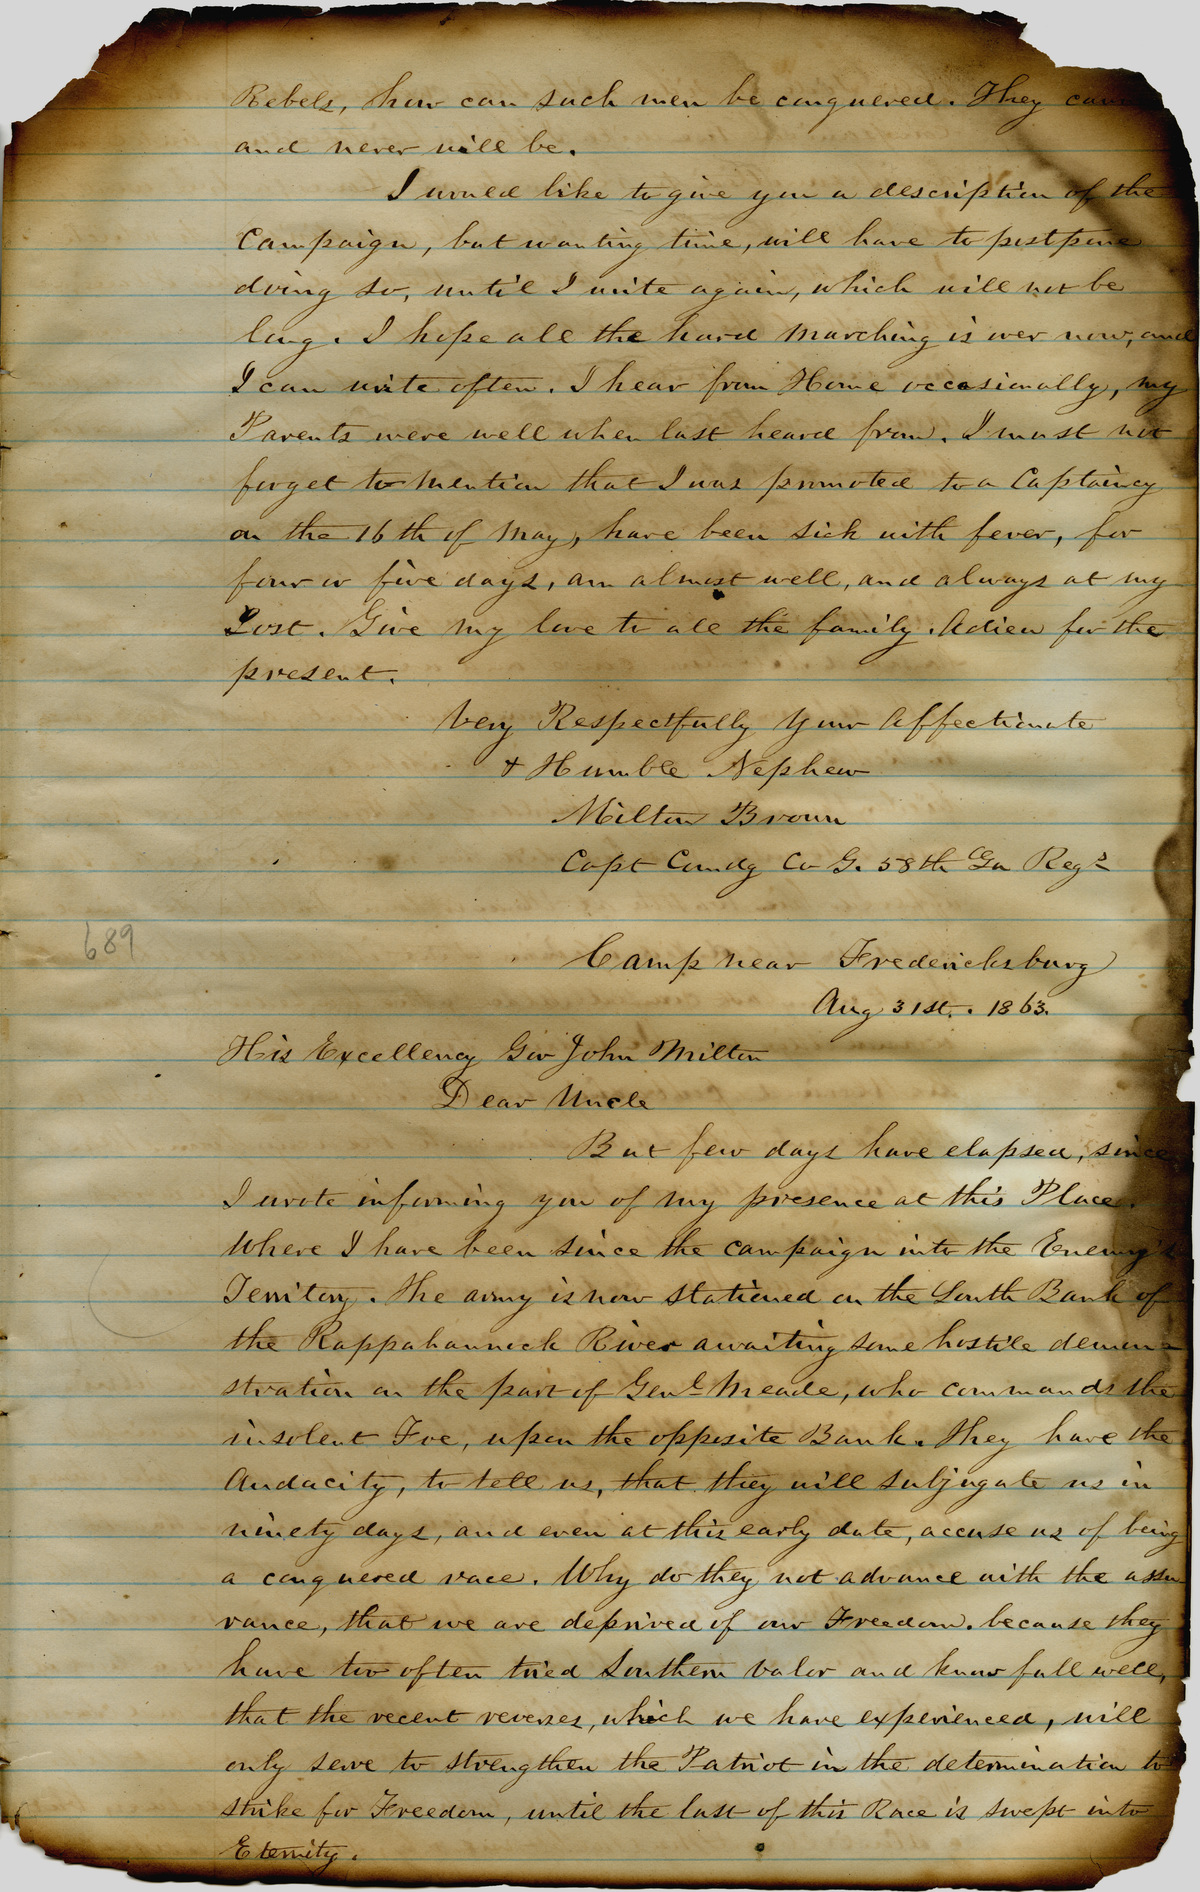 Rebels, how can such men be conquered. They
and never will be.
I would like to give you a description of the
Campaign, but wanting time, will have to postpone
doing so, until I write again, which will not be
long. I hope all the hard marching is over now, and
I can write often. I hear from Home occasionally, my
Parents were well when last heard from. I must not
forget to mention that I was promoted to a Captaincy
on the 16th of May, have been sick with fever, for
four or five days, am almost well, and always at my
Post. Give my love to all the family. Adieu for the
present.
Very Respectfully Your Affectionate
& Humble Nephew
Milton Brown
Capt Comdg Co G. 58th Ga Regt
689
Camp near Fredericksburg
Aug 31st. 1863.
His Excellency Gov John Milton
Dear Uncle
But few days have elapsed, since
I wrote informing you of my presence at this Place.
Where I have been since the campaign into the Enemy's
Territory. The army is now stationed on the South Bank of
the Rappahannock River awaiting some hostile demon-
stration on the part of Genl Meade, who commands the
insolent Foe, upon the opposite Bank. They have the
Audacity, to tell us, that they will subjugate us in
ninety days, and even at this early date, accuse us of being
a conquered race. Why do they not advance with the assu
rance, that we are deprived of our Freedom. because they
have too often tried Southern valor and know full well,
that the recent reverses, which we have experienced, will
only serve to strengthen the Patriot in the determination to
strike for Freedom, until the last of this Race is swept into
Eternity.